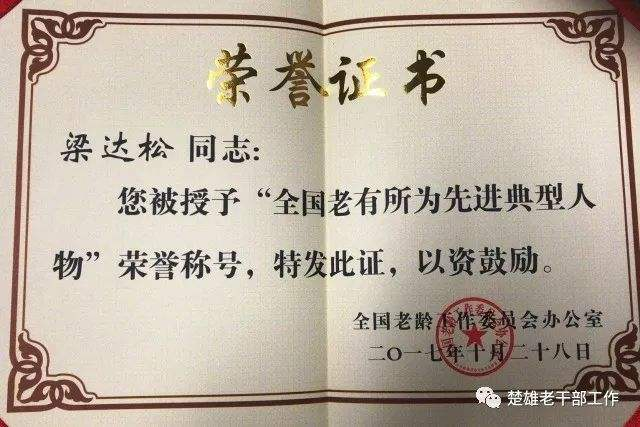 荣誉证书
梁达松 同志：
您被授予“全国老有所为先进典型人
物”荣誉称号，特发此证，以资鼓励。
全国老龄工作委员会办公室
二〇一七年十月二十八日
楚雄老干部工作